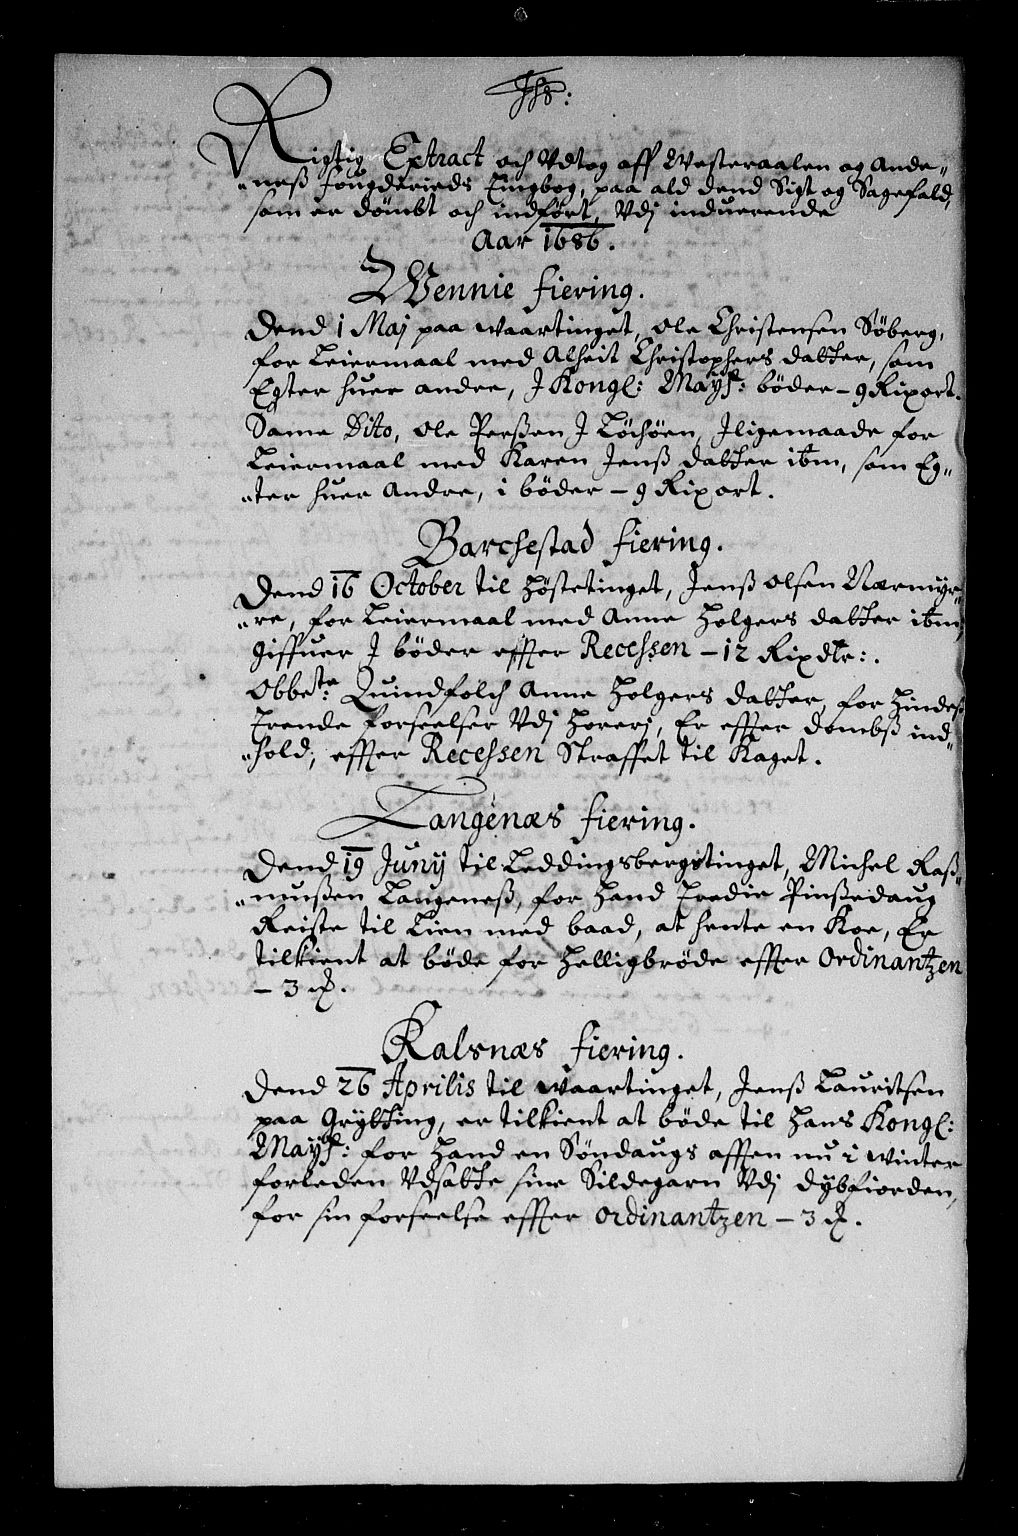 Jhs:
Rigtig Extract och Vdtog aff Westeraalen og Ande„
„neß fougderieds Tingbog, paa ald dend Sigt og Sagefald,
som er dömbt och indført, Vdj induerende
Aar 1686.
Wennie fiering.
Dend 1 Maj paa waartinget, Ole Christensen Söberg,
for Leiermaal med Alheit Christophers datter, som
Egter huer andre, J Kongl: Mayst: böder – 9 Rixort.
Same Dito, Ole Perßen J Löchöen, Iligemaade for
Leiermaal med Karen Jenß datter ibm, som Eg„
„ter huer Andre, i böder – 9 Rixort.
Barchestad fiering.
Dend 16 October til Höstetinget, Jenß Olsen Nærmyr„
„re, for Leiermaal med Anne Holgers datter ibm,
giffuer J böder effter Recessen – 12 Rixdlr:.
Obbete Quindfolch Anne Holgers datter, for hindeß
Trende forseelser Vdj Horerj, Er effter dombß ind„
„hold, effter Recessen Straffet til Kaget.
Langenæs fiering.
Dend 19 Junij til Leddingsbergstinget, Michel Raß„
„mußen Langeneß, for hand Tredie Pinßedaug
Reiste til Lien med baad, at hente en Koe, Er
tilkient at böde for Helligbröde effter Ordinantzen
– 3 ℔.
Kalsnæs fiering.
Dend 26 Aprilis til waartinget, Jenß Lauritsen
paa Grytting, er tilkient at böde til Hans Kongl:
Mayst: for hand en Söndaugs afften nu i winter
forleden Vdsatte sine Sildegarn Vdj dybfiorden,
for sin forseelse effter Ordinantzen – 3 ℔.